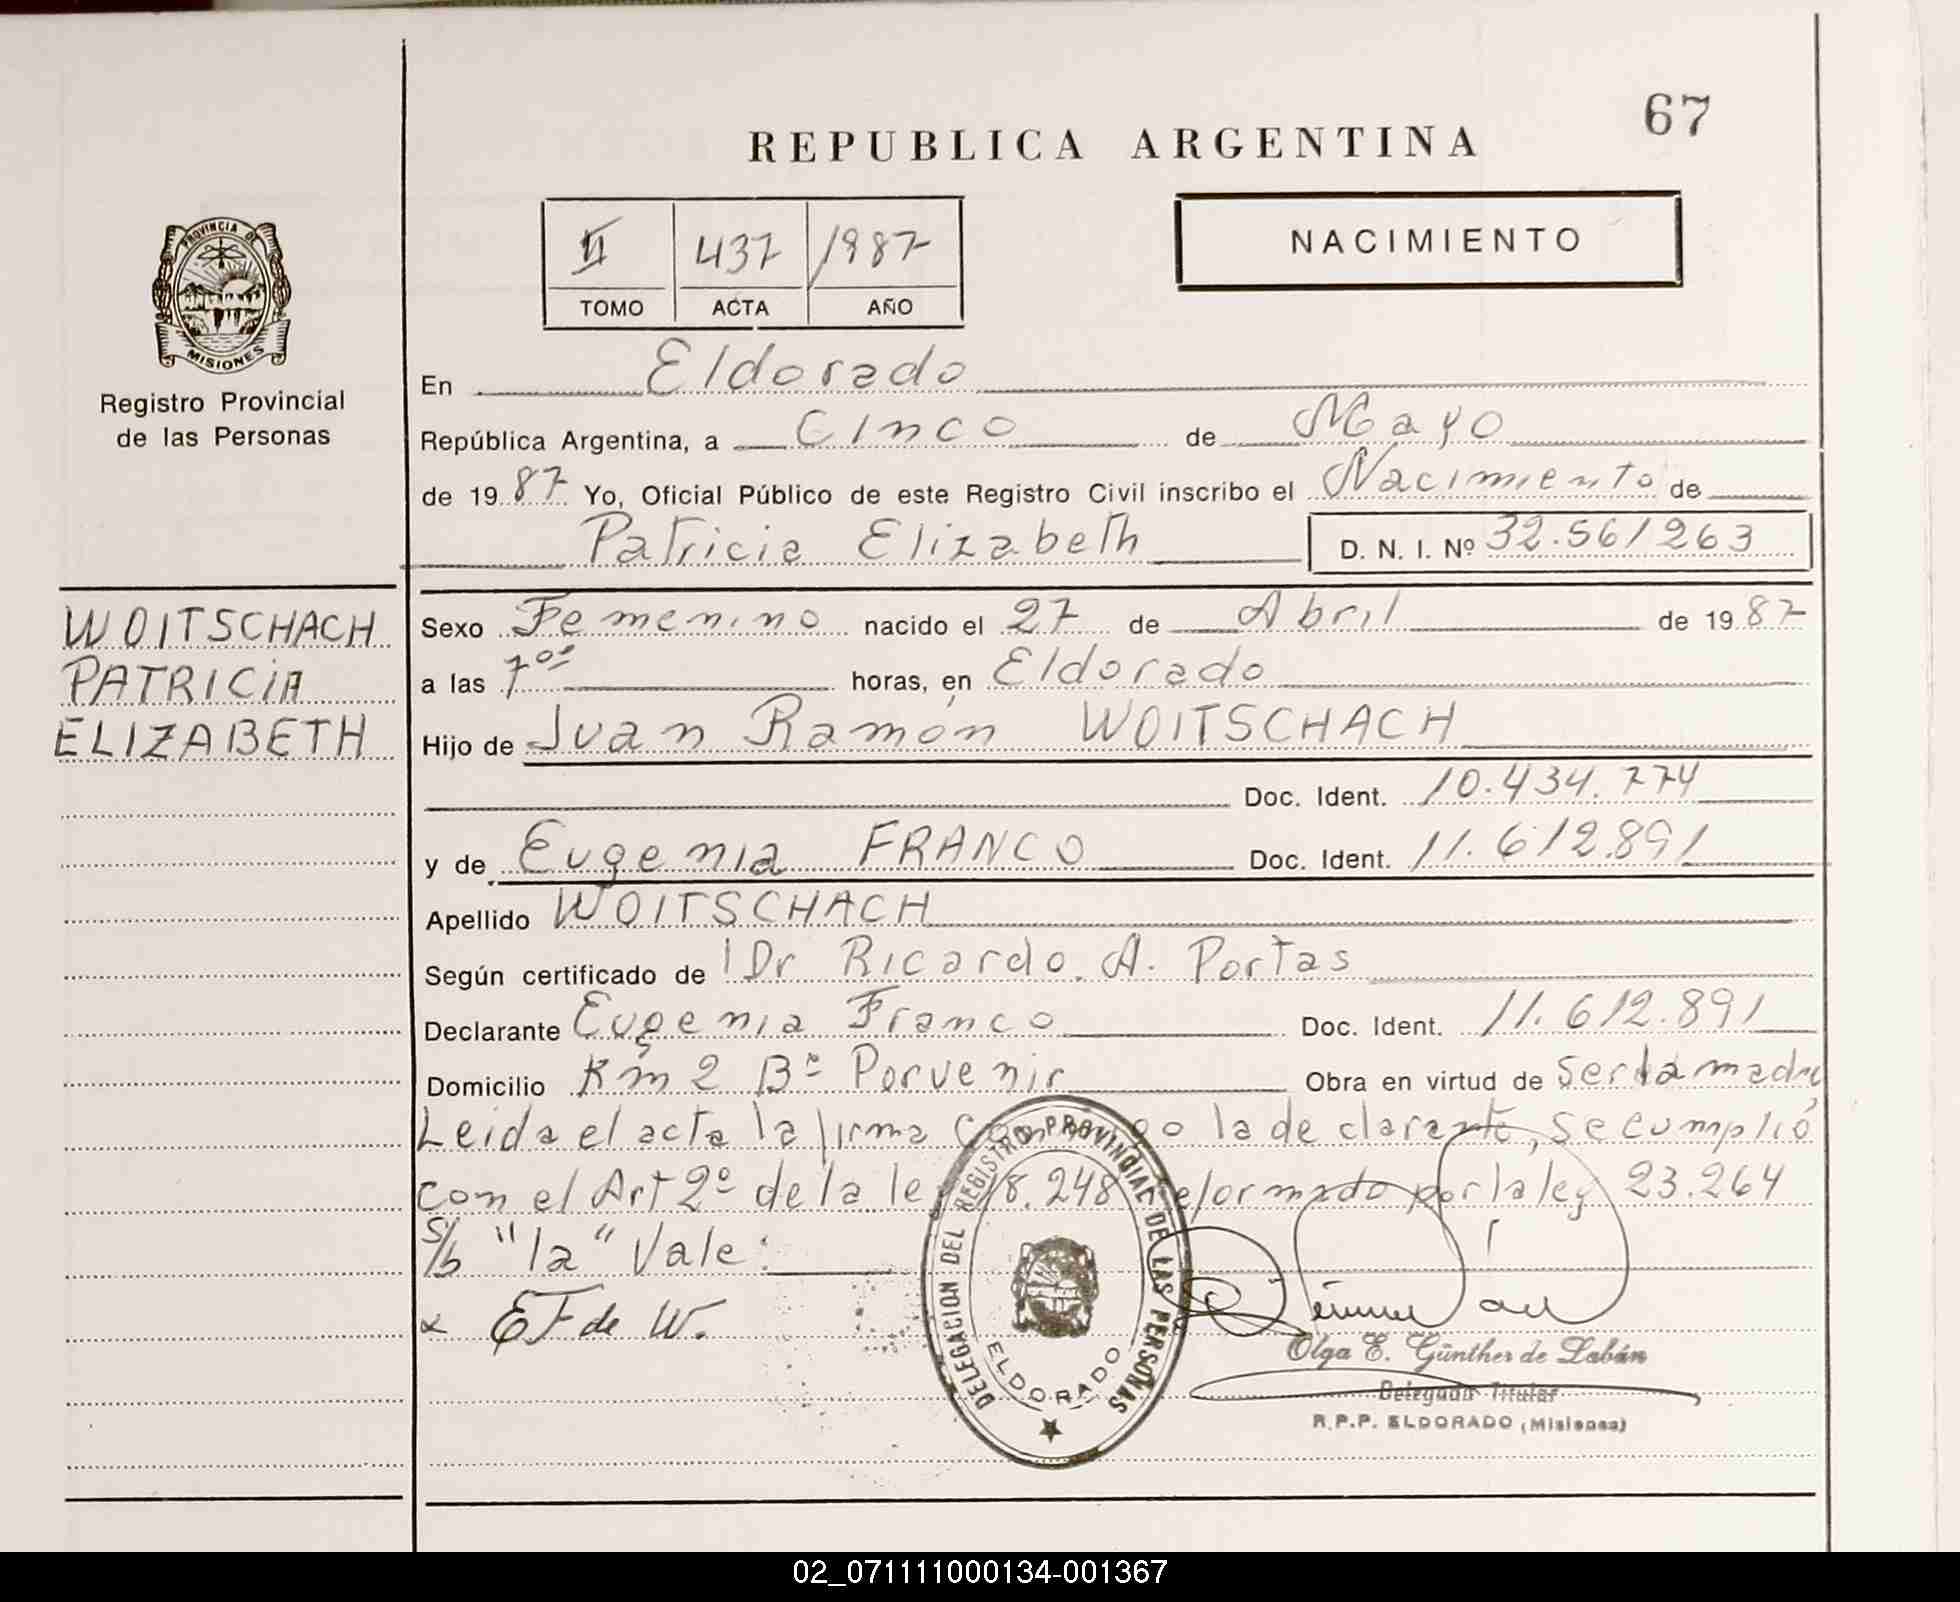 67
REPUBLICA ARGENTINA
PROVINCIA DE
MISIONES
Registro Provincial
de las Personas
II 437 1987
TOMO ACTA AÑO
NACIMIENTO
En Eldorado
República Argentina, a Cinco de Mayo
de 1987 Yo, Oficial Público de este Registro Civil inscribo el Nacimiento de
Patricia Elizabeth D. N. I. Nº 32.561263
WOITSCHACH
PATRICIA
ELIZABETH
Sexo Femenino nacido el 27 de Abril de 1987
a las 7⁰⁰ horas, en Eldorado
Hijo de Juan Ramón WOITSCHACH
Doc. Ident. 10.434.774
y de Eugenia FRANCO Doc. Ident. 11.612.891
Apellido WOITSCHACH
Según certificado de Dr Ricardo. A. Portas
Declarante Eugenia Franco Doc. Ident. 11.612.891
Domicilio Km 2 Bº Porvenir Obra en virtud de ser la madre
Leida el acta la firma conmigo la declarante, se cumplió
con el Art 2º de la ley 18.248 reformado por la ley 23.264
s/b "la" Vale:
EF de W.
DELEGACION DEL REGISTRO PROVINCIAL DE LAS PERSONAS
ELDORADO
Olga E. Günther de Labán
Delegada Titular
R.P.P. ELDORADO (Misiones)
02_071111000134-001367